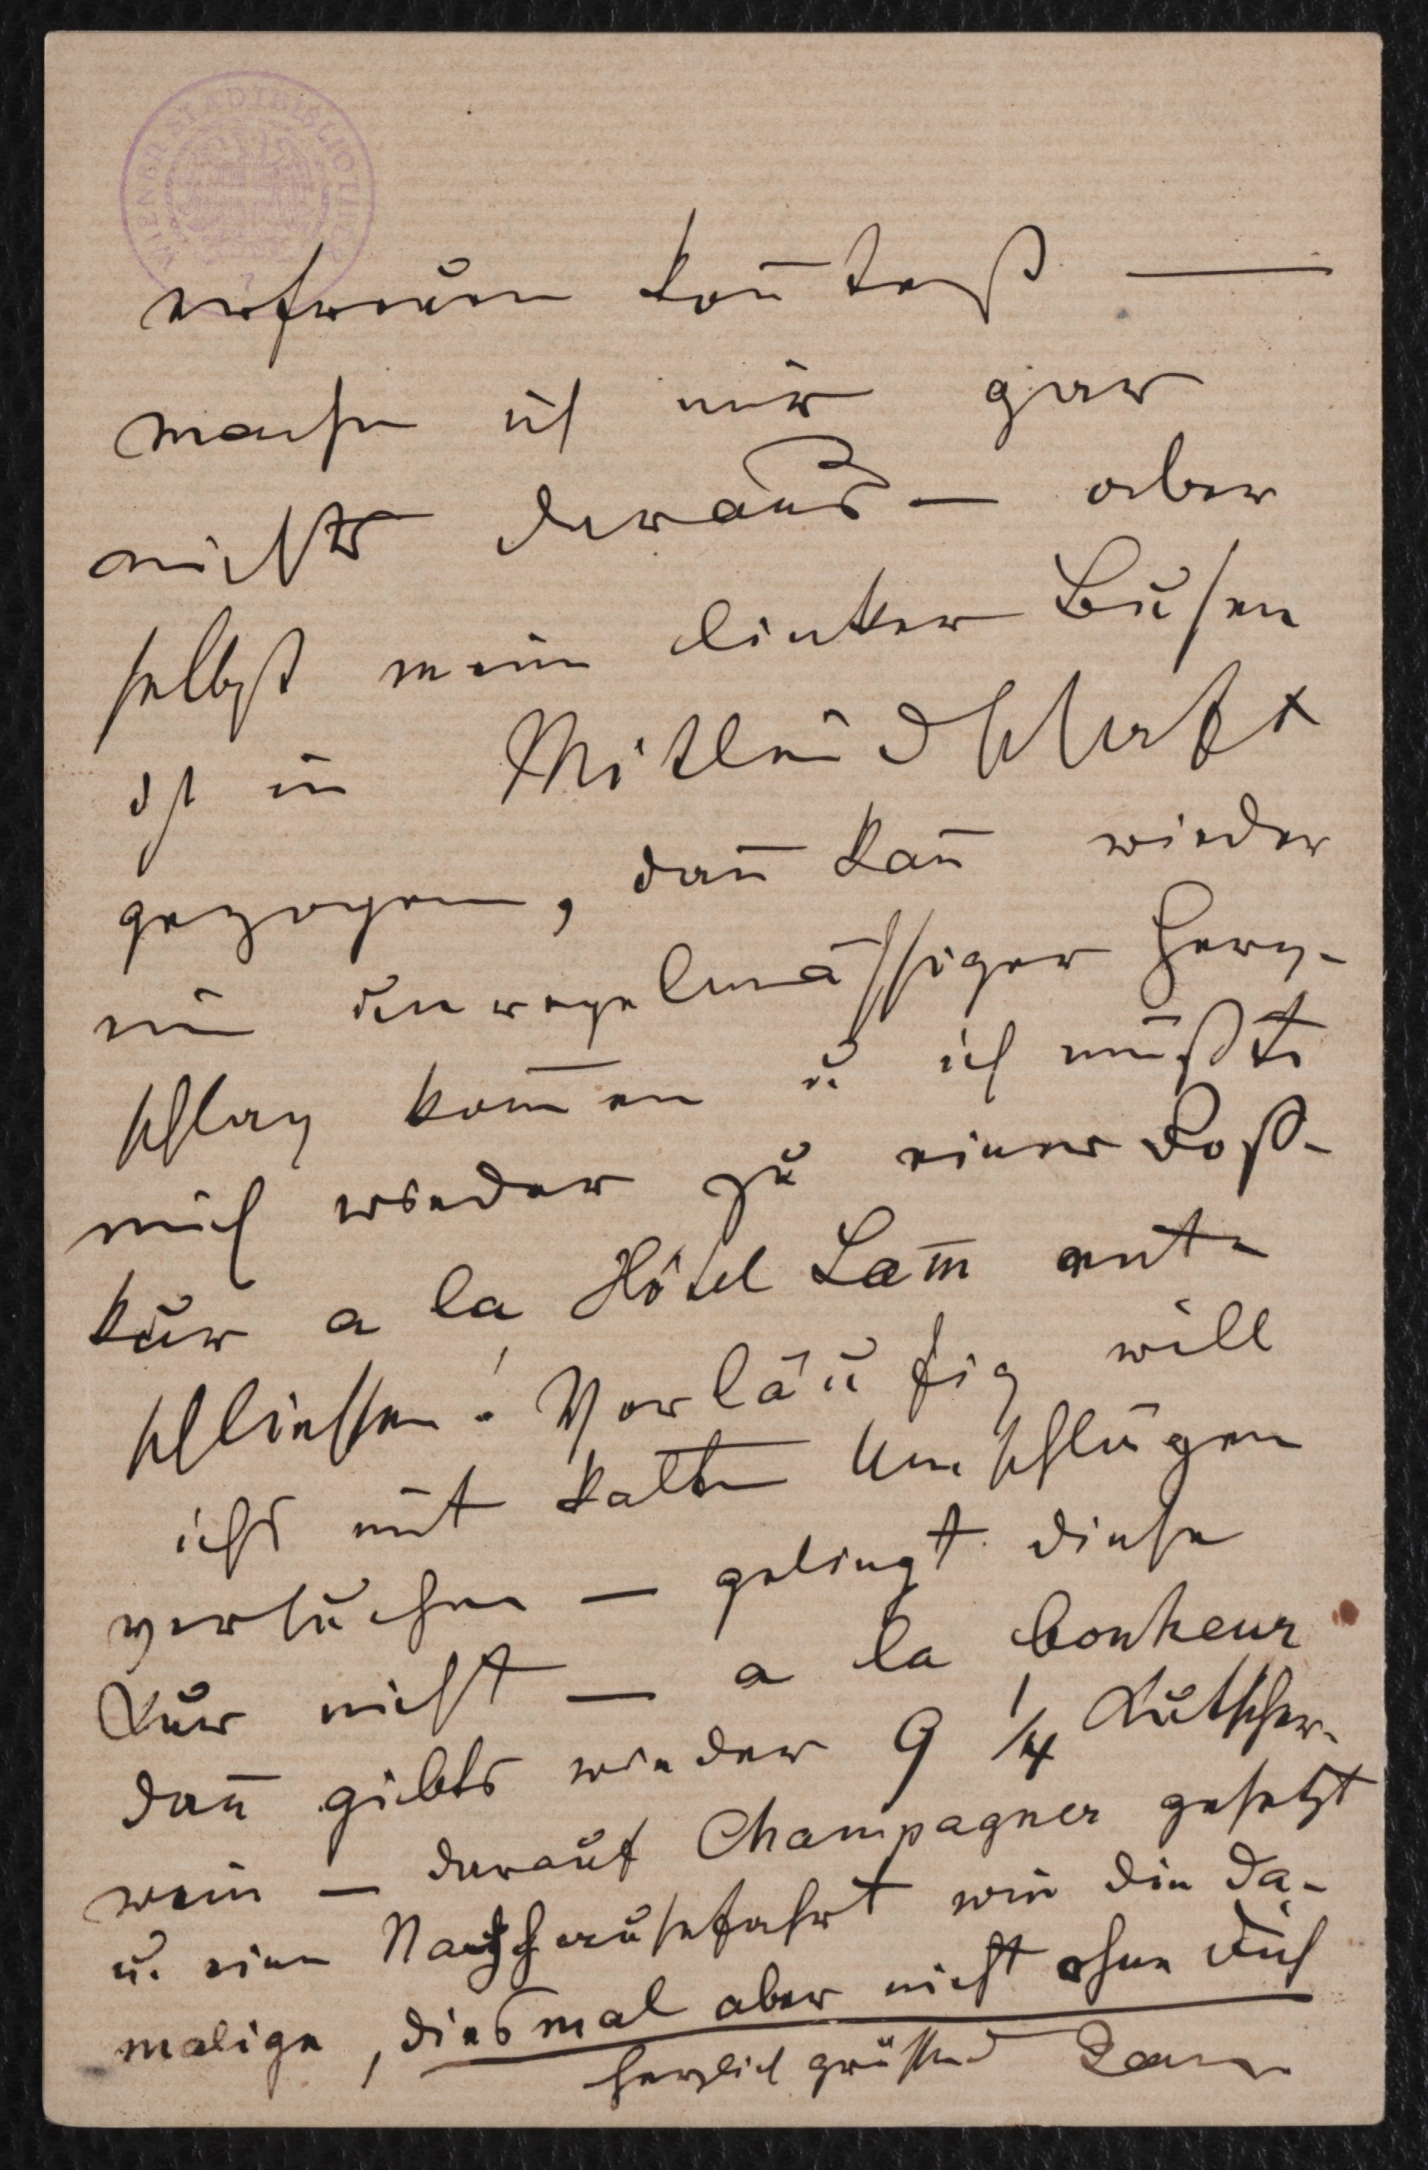 WIENER STADTBIBLIOTHEK
erfreuen kon̄test —
mache ich mir gar
nichts daraus — aber
selbst mein linker Busen
ist in Mitleidschaft
gezogen, dan̄ kan̄ wieder
ein unregelmässiger Herz-
schlag kom̄en u ich müßte
mich wieder zu einer Roß-
kur a la Hôtel Lam̄ ent-
schliessen! Vorläufig will
ichs mit kalten Umschlägen
versuchen — gelingt diese
Kur nicht — a la bonheur
dan̄ gibts wieder 9 1/4 Kutscher-
wein — darauf Champagner gesetzt
u. eine Nachhausefahrt wie die da-
malige, diesmal aber nicht ohne Dich
herzlich grüssend